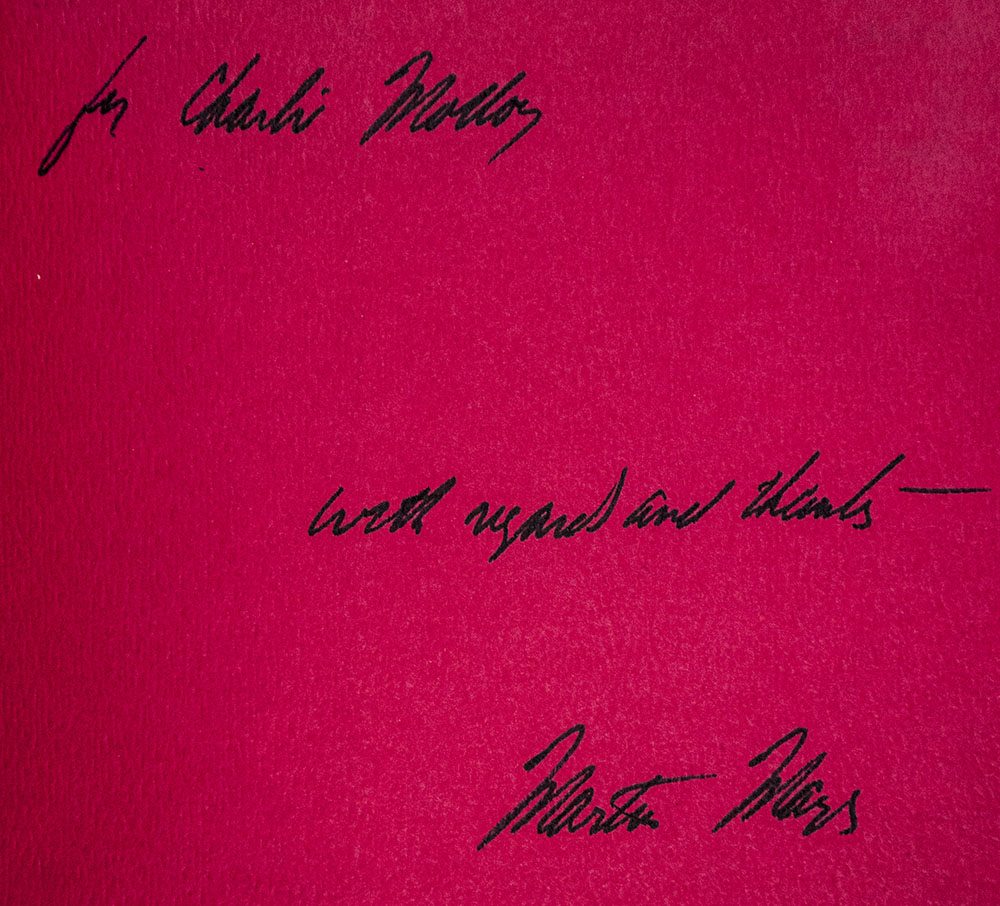 for Charlie Molloy
with regards and thanks —
Martin Mayer